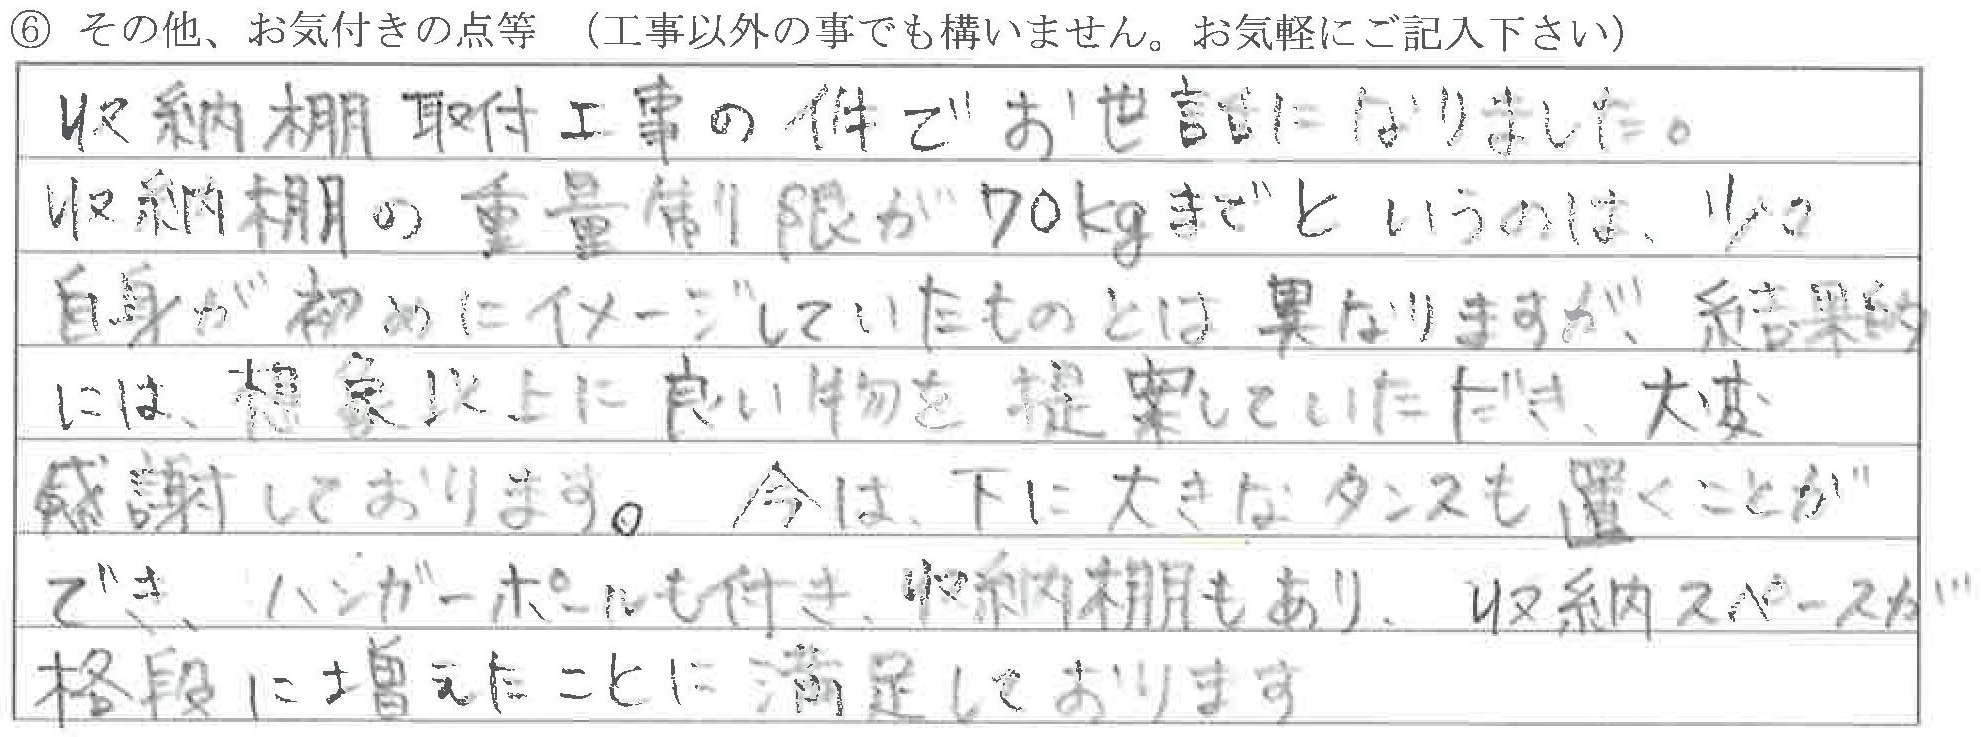 ⑥ その他、お気付きの点等 （工事以外の事でも構いません。お気軽にご記入下さい）
収納棚取付工事の件でお世話になりました。
収納棚の重量制限が70kgまでというのは、
自身が初めにイメージしていたものとは異なりますが、結果的
には、想象以上に良い物を提案していただき、大変
感謝しております。 今は、下に大きなタンスも置くことが
でき、ハンガーポールも付き、収納棚もあり、収納スペースが
格段に増えたことに満足しております